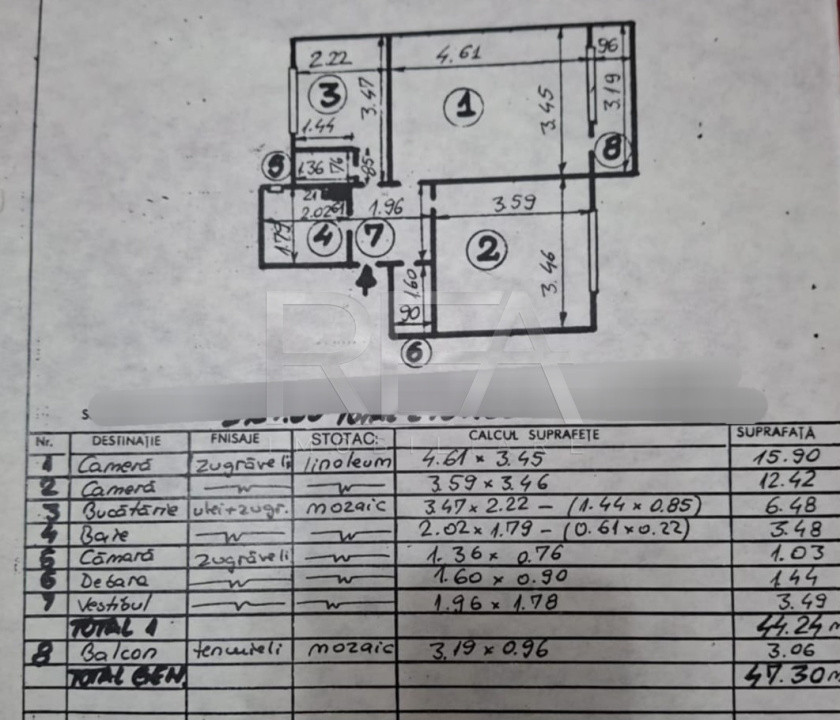 2.22
4.61
96
3
3.47
1
3.45
3.19
1.44
8
5
1.36 76
85
21
2.02 61
1.96
3.59
1.79
4
7
2
3.46
1.60
90
6
S.
Nr. DESTINAȚIE FNISAJE STOTAC: CALCUL SUPRAFEȚE SUPRAFATĂ
1 Cameră zugrăveli linoleum 4.61 × 3.45 15.90
2 Cameră 3.59 × 3.46 12.42
3 Bucătărie ulei+zugr. mozaic 3.47 × 2.22 - (1.44 × 0.85) 6.48
4 Baie 2.02 × 1.79 - (0.61 × 0.22) 3.48
5 Cămară zugrăveli 1.36 × 0.76 1.03
6 Debara 1.60 × 0.90 1.44
7 Vestibul 1.96 × 1.78 3.49
TOTAL 1 44.24 m
8 Balcon tencuieli mozaic 3.19 × 0.96 3.06
TOTAL GEN. 47.30 m